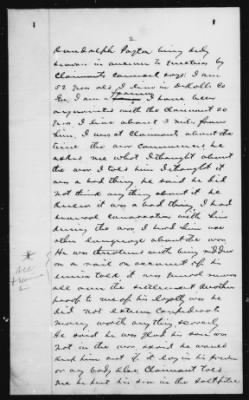 2
Randolph Payton being duly
sworn in answer to questions by
Claimants counsel says: I am
52 years old, I live in DeKalb Co
Ga, I am a farming I have been
acquainted with the claimant 20
years I live about 3 mile from
him, I was at Claimants about the
time the war commenced, he
asked me what I thought about
the war I told him I thought it
was a bad thing he said he did
not think any thing about it he
knew it was a bad thing, I had
several conversation with him
during the war, I heard him use
other language about the war,
He was threatened with being ridden
on a rail on account of his
union talk it was general news
all over the settlement Another
proof to me of his loyalty was he
did not esteem Confederate
money worth anything scarcely
He said he was glad his son was
not in the war said he would
keep him out if it lay in his power
or any body else Claimant told
me he put his son in the Saltpetre